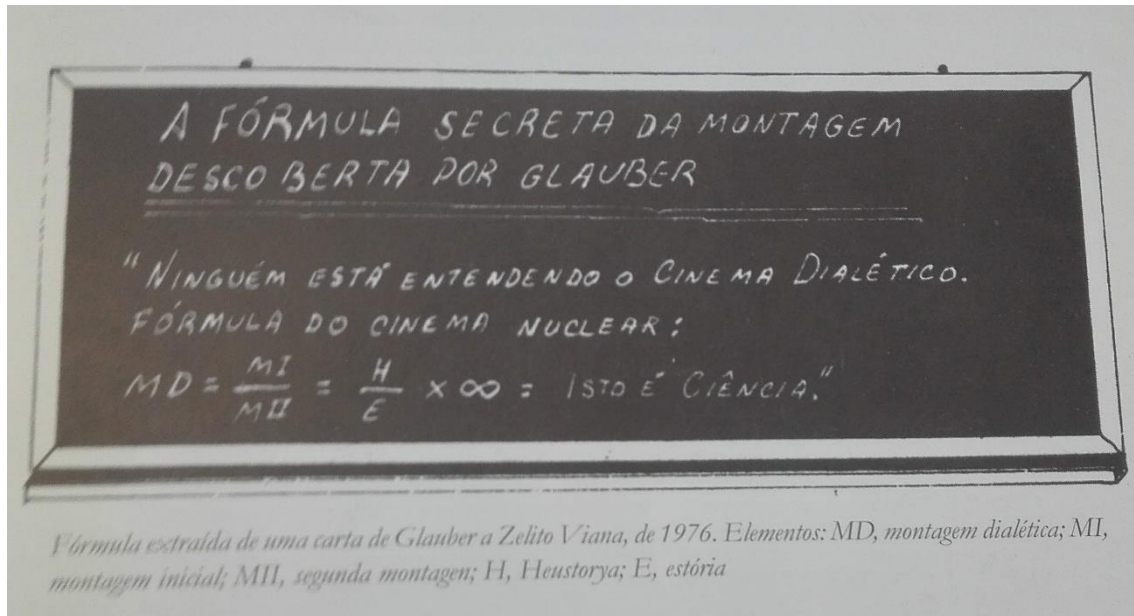 A FÓRMULA SECRETA DA MONTAGEM
DESCOBERTA POR GLAUBER
"NINGUÉM ESTÁ ENTENDENDO O CINEMA DIALÉTICO.
FÓRMULA DO CINEMA NUCLEAR:
MD = MI/MII = H/E × ∞ = ISTO É CIÊNCIA."
Fórmula extraída de uma carta de Glauber a Zelito Viana, de 1976. Elementos: MD, montagem dialética; MI,
montagem inicial; MII, segunda montagen; H, Heustorya; E, estória